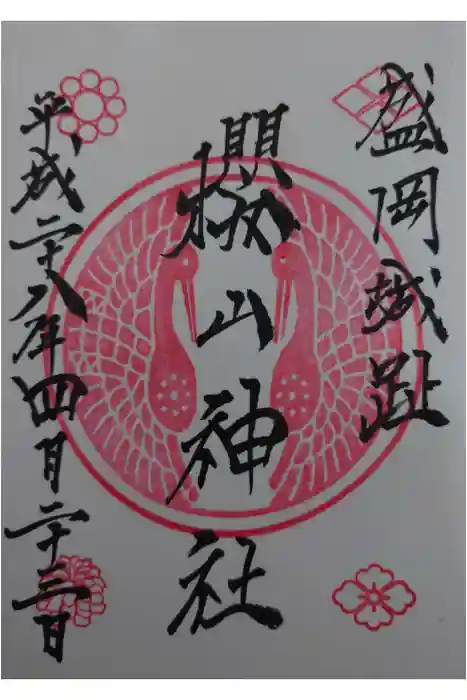 盛岡城趾
櫻山神社
平成二十八年四月二十三日